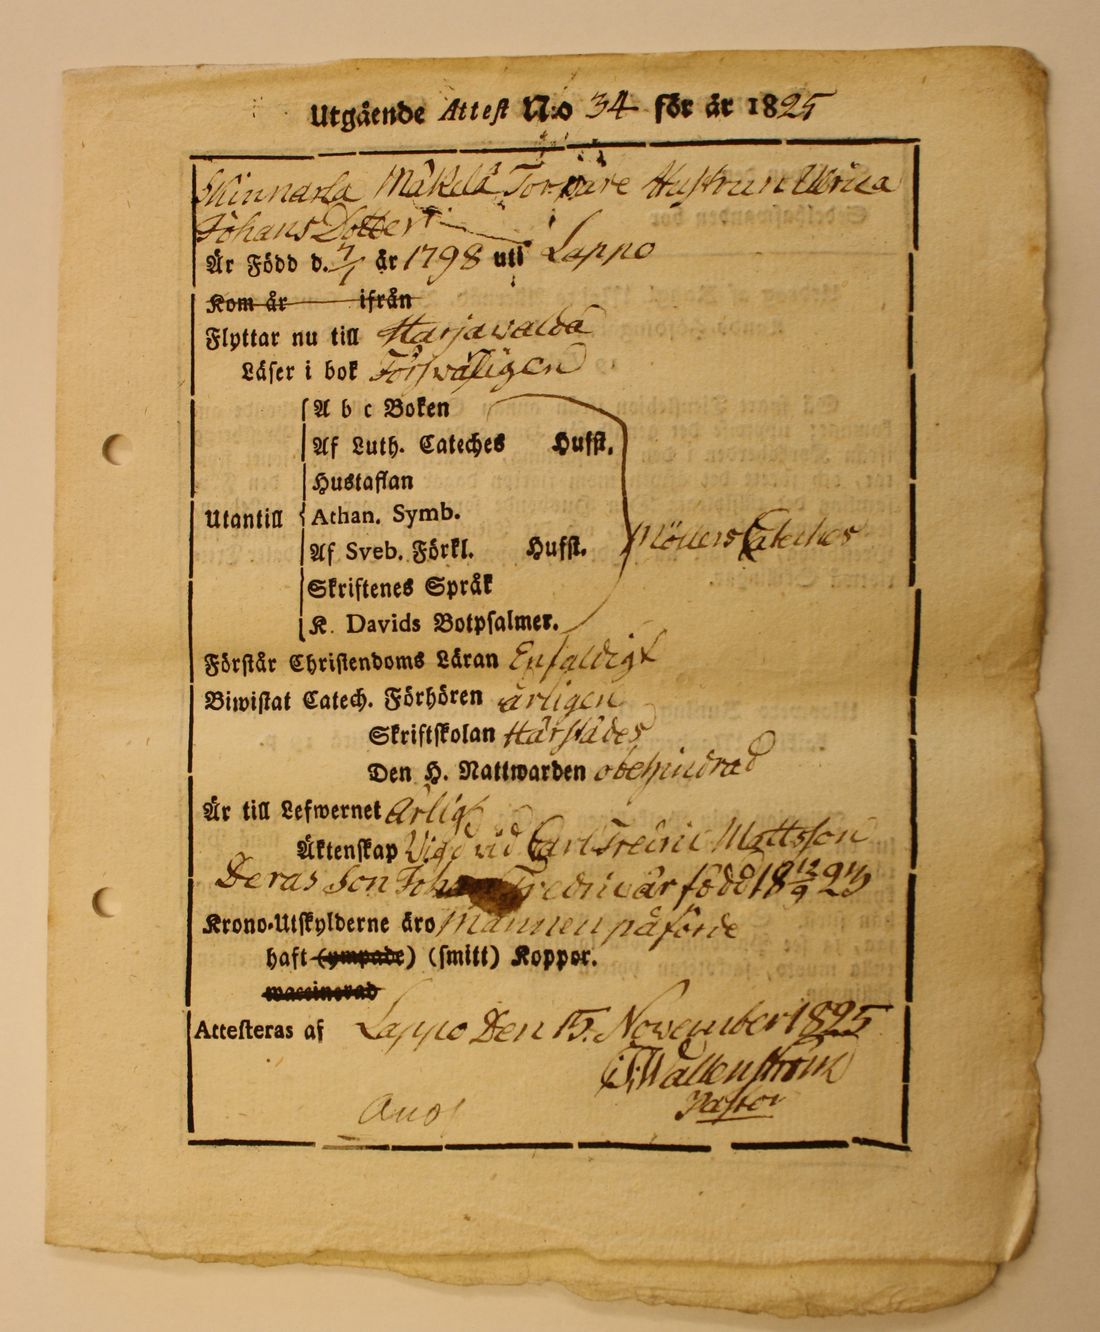 Utgående Attest N:o 34 för år 1825
Skinnarla Mäkelä Torpare Hustrun Ulrica
Johans Dotter
Är Född d. 4/1 år 1798 uti Lappo
Kom år ifrån
Flyttar nu till Harjawalda
Läser i bok Förswarligen
A b c Boken
Af Luth. Cateches Hufst.
Hustaflan
Utantill Athan. Symb.
Af Sveb. Förkl. Hufst. Möllers Cateches
Skriftenes Språk
K. Davids Botpsalmer.
Förstår Christendoms Läran Enfaldigt
Biwistat Catech. Förhören årligen
Skriftskolan Härstädes
Den H. Nattwarden obehindrad
Är till Lefwernet Ärlig
Äktenskap Vigd vid Carl Fredric Mattsson
Deras Son Johan Fredric är född 18 12/9 23
Krono-Utskylderne äro Mannen påförde
haft (ympade) (smitt) Koppor.
waccinerad
Attesteras af Lappo Den 15. November 1825
Wallenström
Pastor